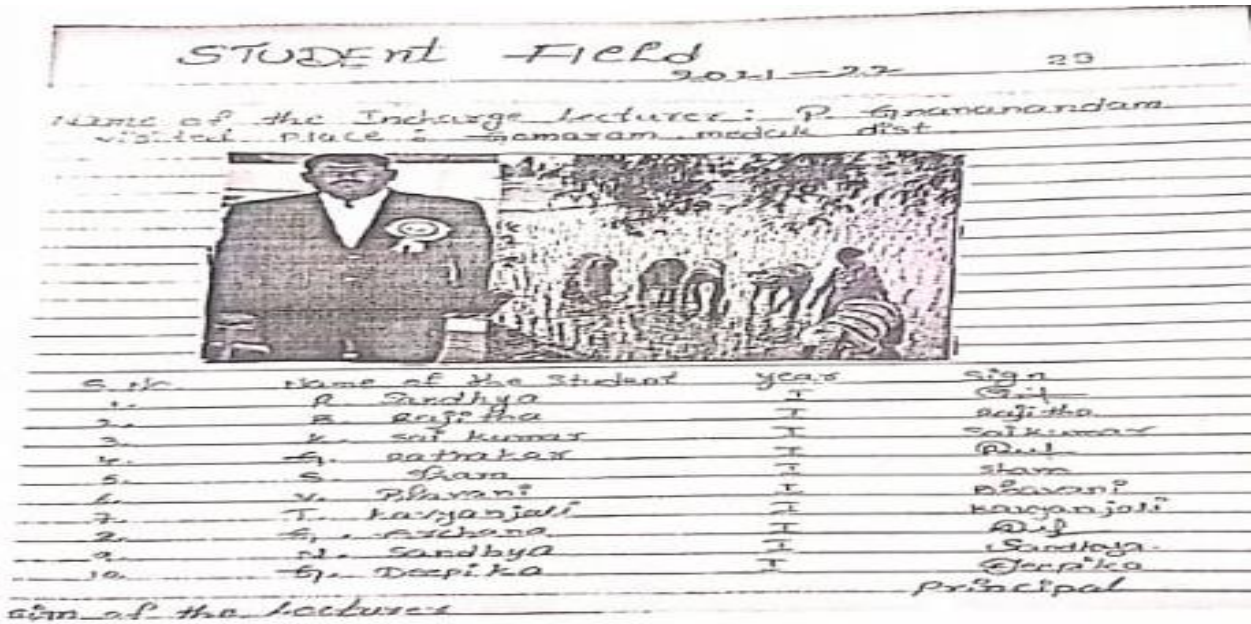 STUDENT FIELD
2021-22
23
Name of the Incharge Lecturer : P. Gnananandam
visited place : Gomaram medak dist
S. No Name of the Student year sign
1. R. Sandhya I
2. B. Rajitha I Rajitha
3. K. Sai Kumar I Saikumar
4. G. I
5. S. Sham I Sham
6. V. Bhavani I Bhavani
7. T. Kavyanjali I Kavyanjali
8. G. Archana I
9. N. Sandhya I Sandhya
10. G. Deepika I Deepika
principal
sign of the Lecturer